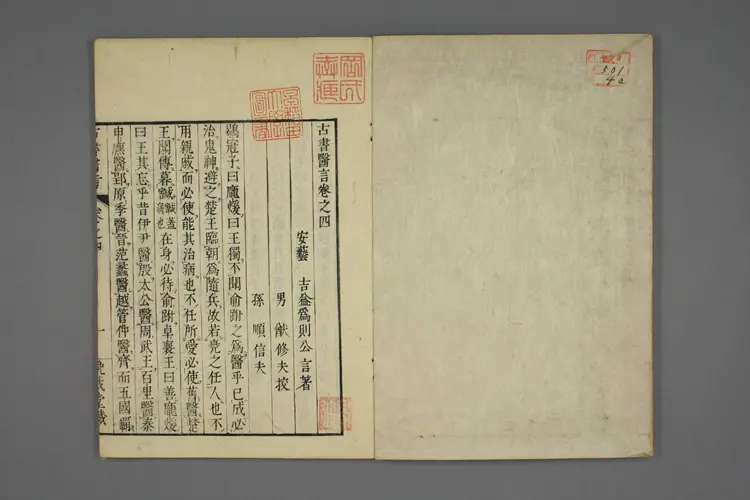 古書醫言卷之四
安藝 吉益爲則公言著
男 猷修夫挍
孫 順信夫
鶡冠子曰龐煖曰王獨不聞俞跗之爲醫乎已成必
治鬼神避之楚王臨朝爲隨兵故若堯之任人也不
用親戚而必使能其治病也不任所愛必使舊醫楚
王聞傳暮䵴䵴蓋病也在身必待俞跗卓襄王曰善龐煖
曰王其忘乎昔伊尹醫殷太公醫周武王百里醫秦
申麃醫郢原季醫晉范蠡醫越管仲醫齊而五國霸
古書醫言 卷之四 一
501
42